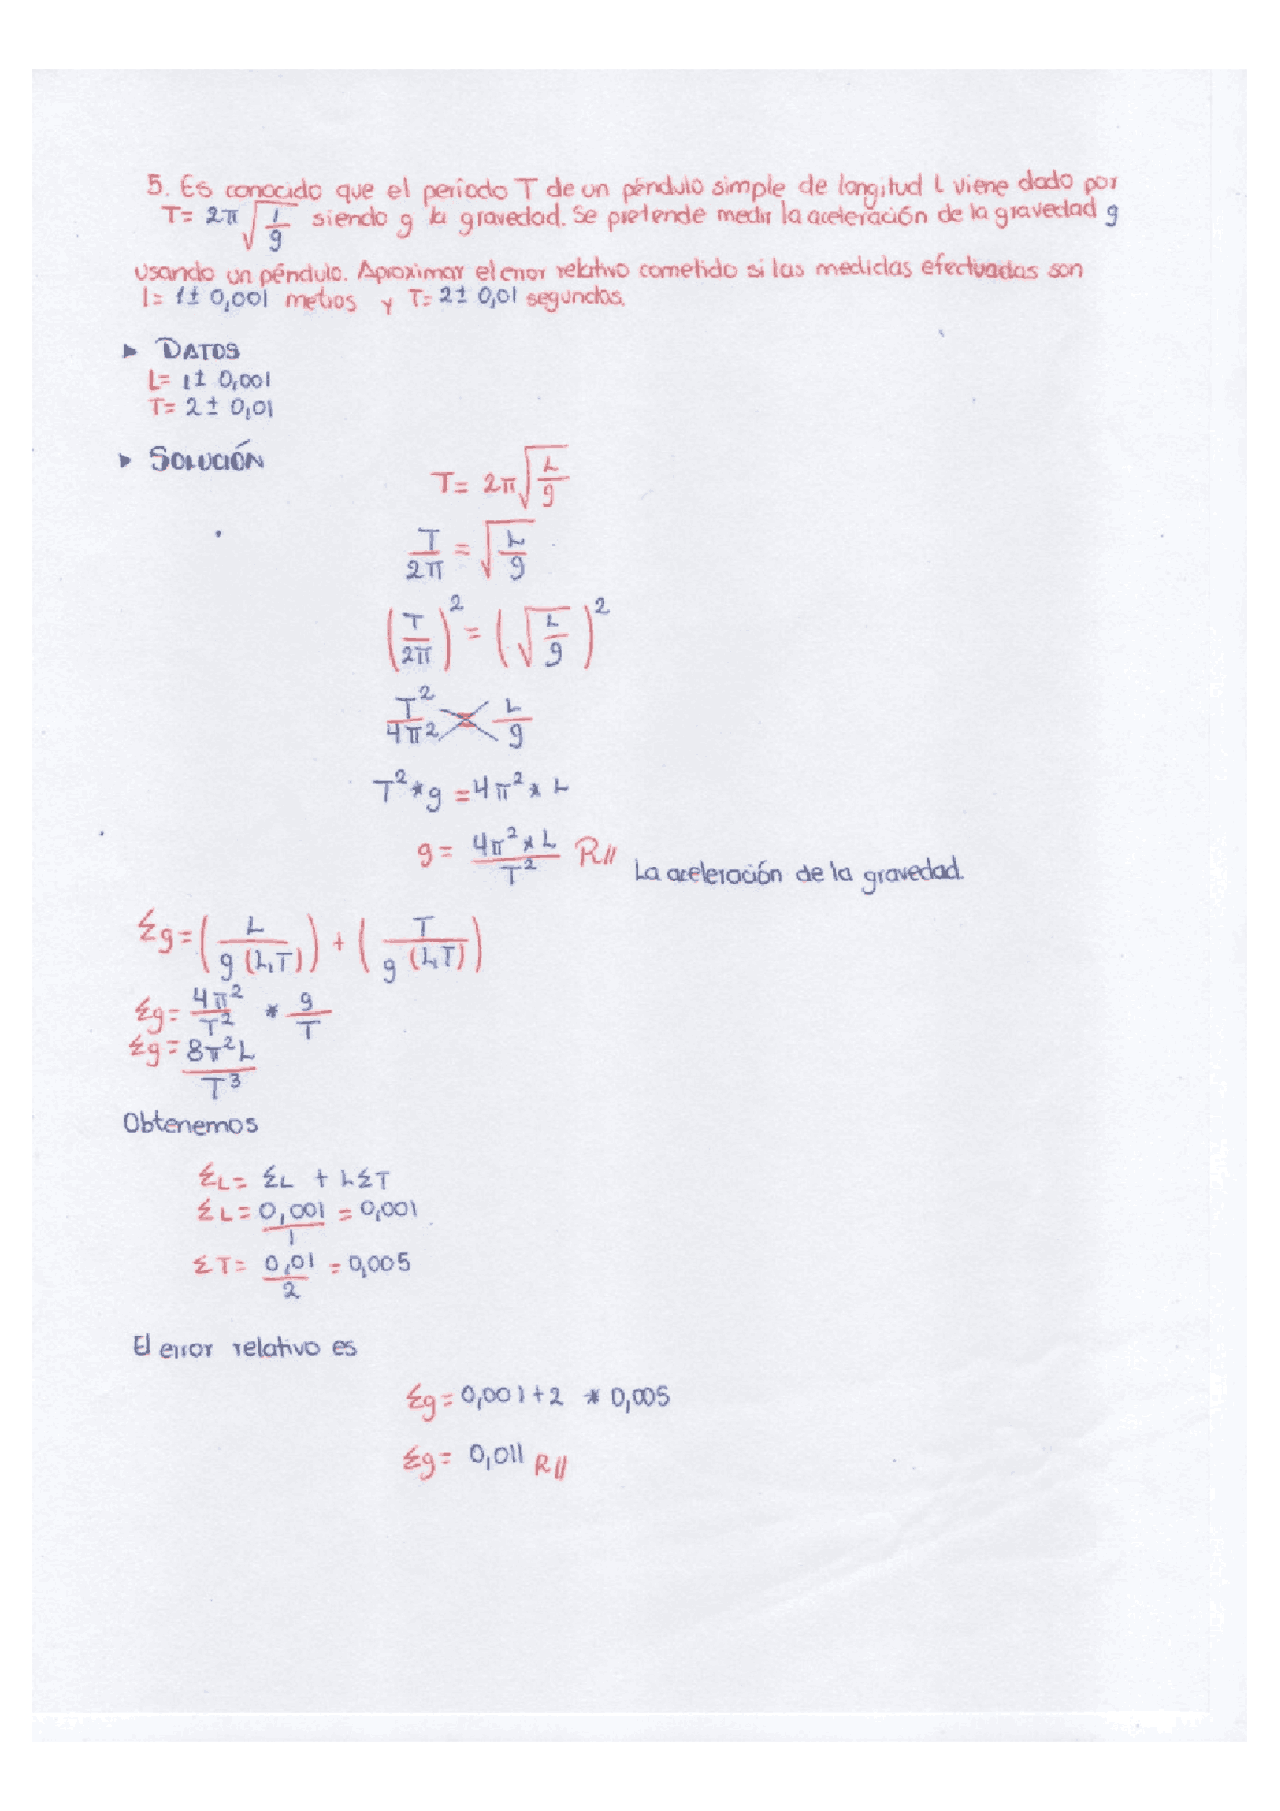 5. Es conocido que el período T de un péndulo simple de longitud L viene dado por
T= 2π √(L/g) siendo g la gravedad. Se pretende medir la aceleración de la gravedad g
usando un péndulo. Aproximar el error relativo cometido si las medidas efectuadas son
l= 1± 0,001 metros y T= 2± 0,01 segundos.
▸ DATOS
L= 1± 0,001
T= 2± 0,01
▸ SOLUCIÓN
T= 2π√(L/g)
T/2π = √(L/g)
(T/2π)² = (√(L/g))²
T²/4π² = L/g
T² * g = 4π² * L
g = 4π² * L / T² R// La aceleración de la gravedad.
Σg = (L / g (L,T)) + (T / g (L,T))
Σg = 4π²/T² * g/T
Σg = 8π²L / T³
Obtenemos
ΣL = ΣL + LΣT
ΣL = 0,001/1 = 0,001
ΣT = 0,01/2 = 0,005
El error relativo es
Σg = 0,001+2 * 0,005
Σg = 0,011 R//